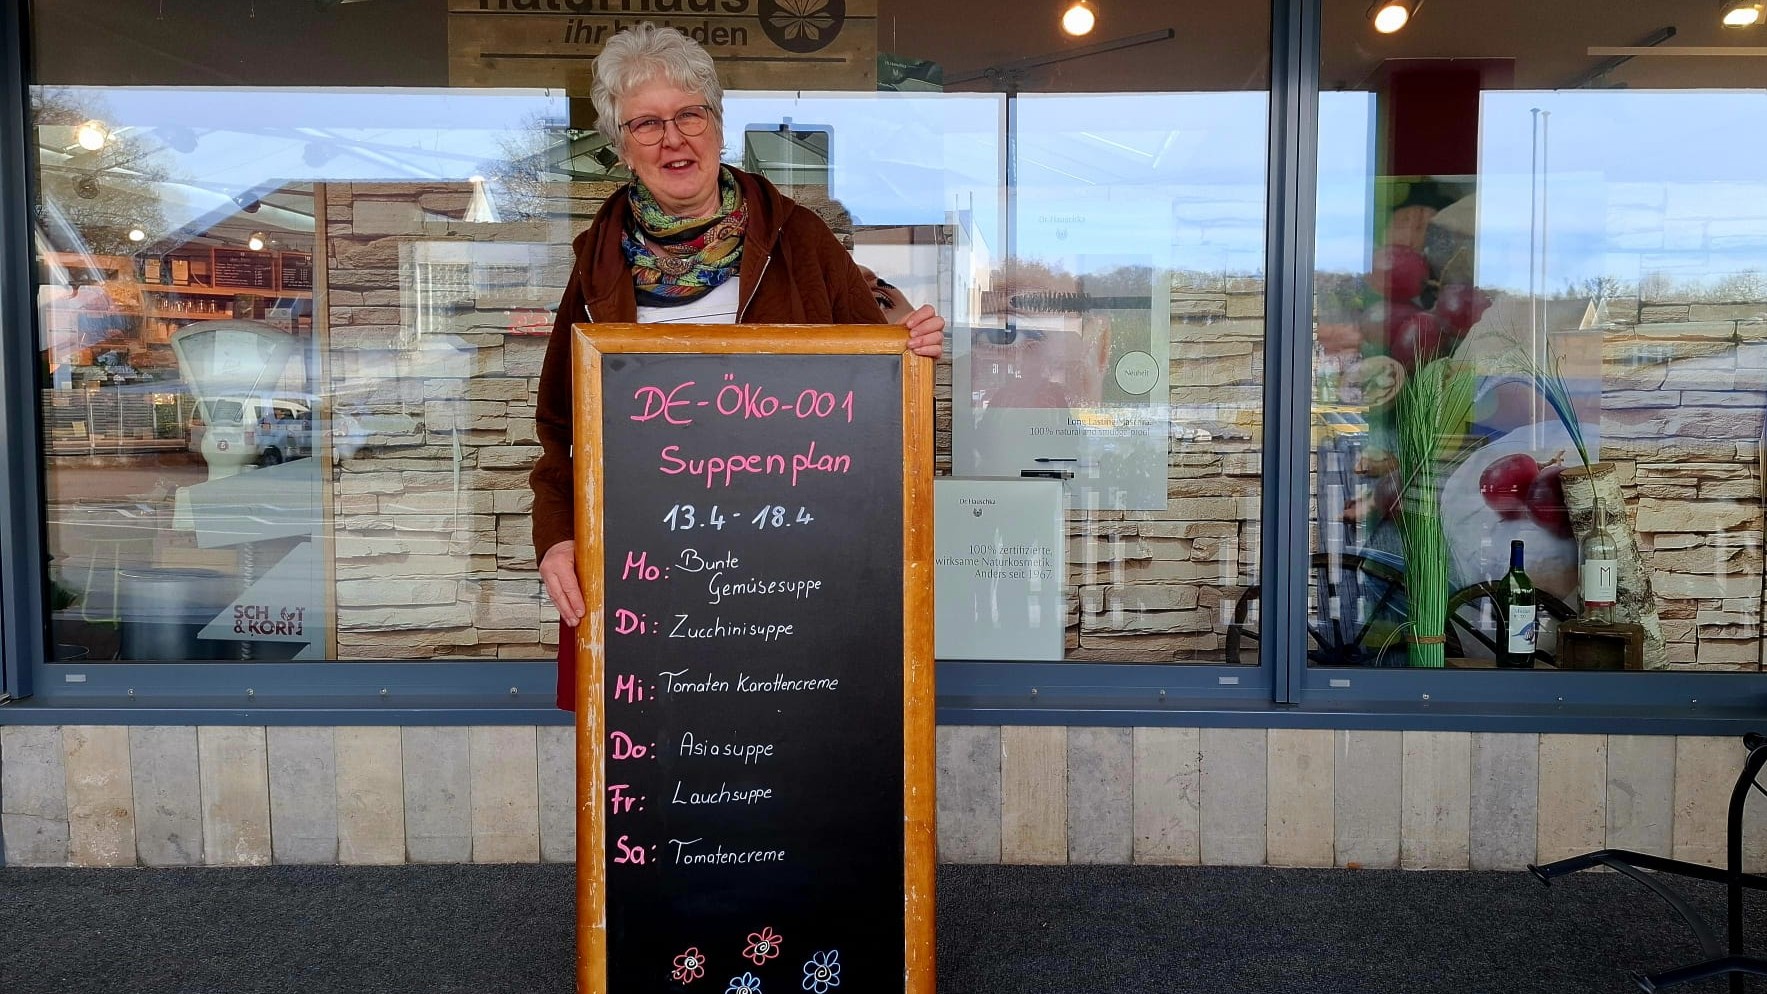 naturhaus
ihr bioladen
DE-ÖKO-001
Suppenplan
13.4 - 18.4
Mo: Bunte
Gemüsesuppe
Di: Zucchinisuppe
Mi: Tomaten Karottencreme
Do: Asiasuppe
Fr: Lauchsuppe
Sa: Tomatencreme
SCHROT
& KORN
Dr. Hauschka
Neuheit
Long Lasting Mascara.
100 % natural and smudge-proof
Dr. Hauschka
100 % zertifizierte,
wirksame Naturkosmetik.
Anders seit 1967
M